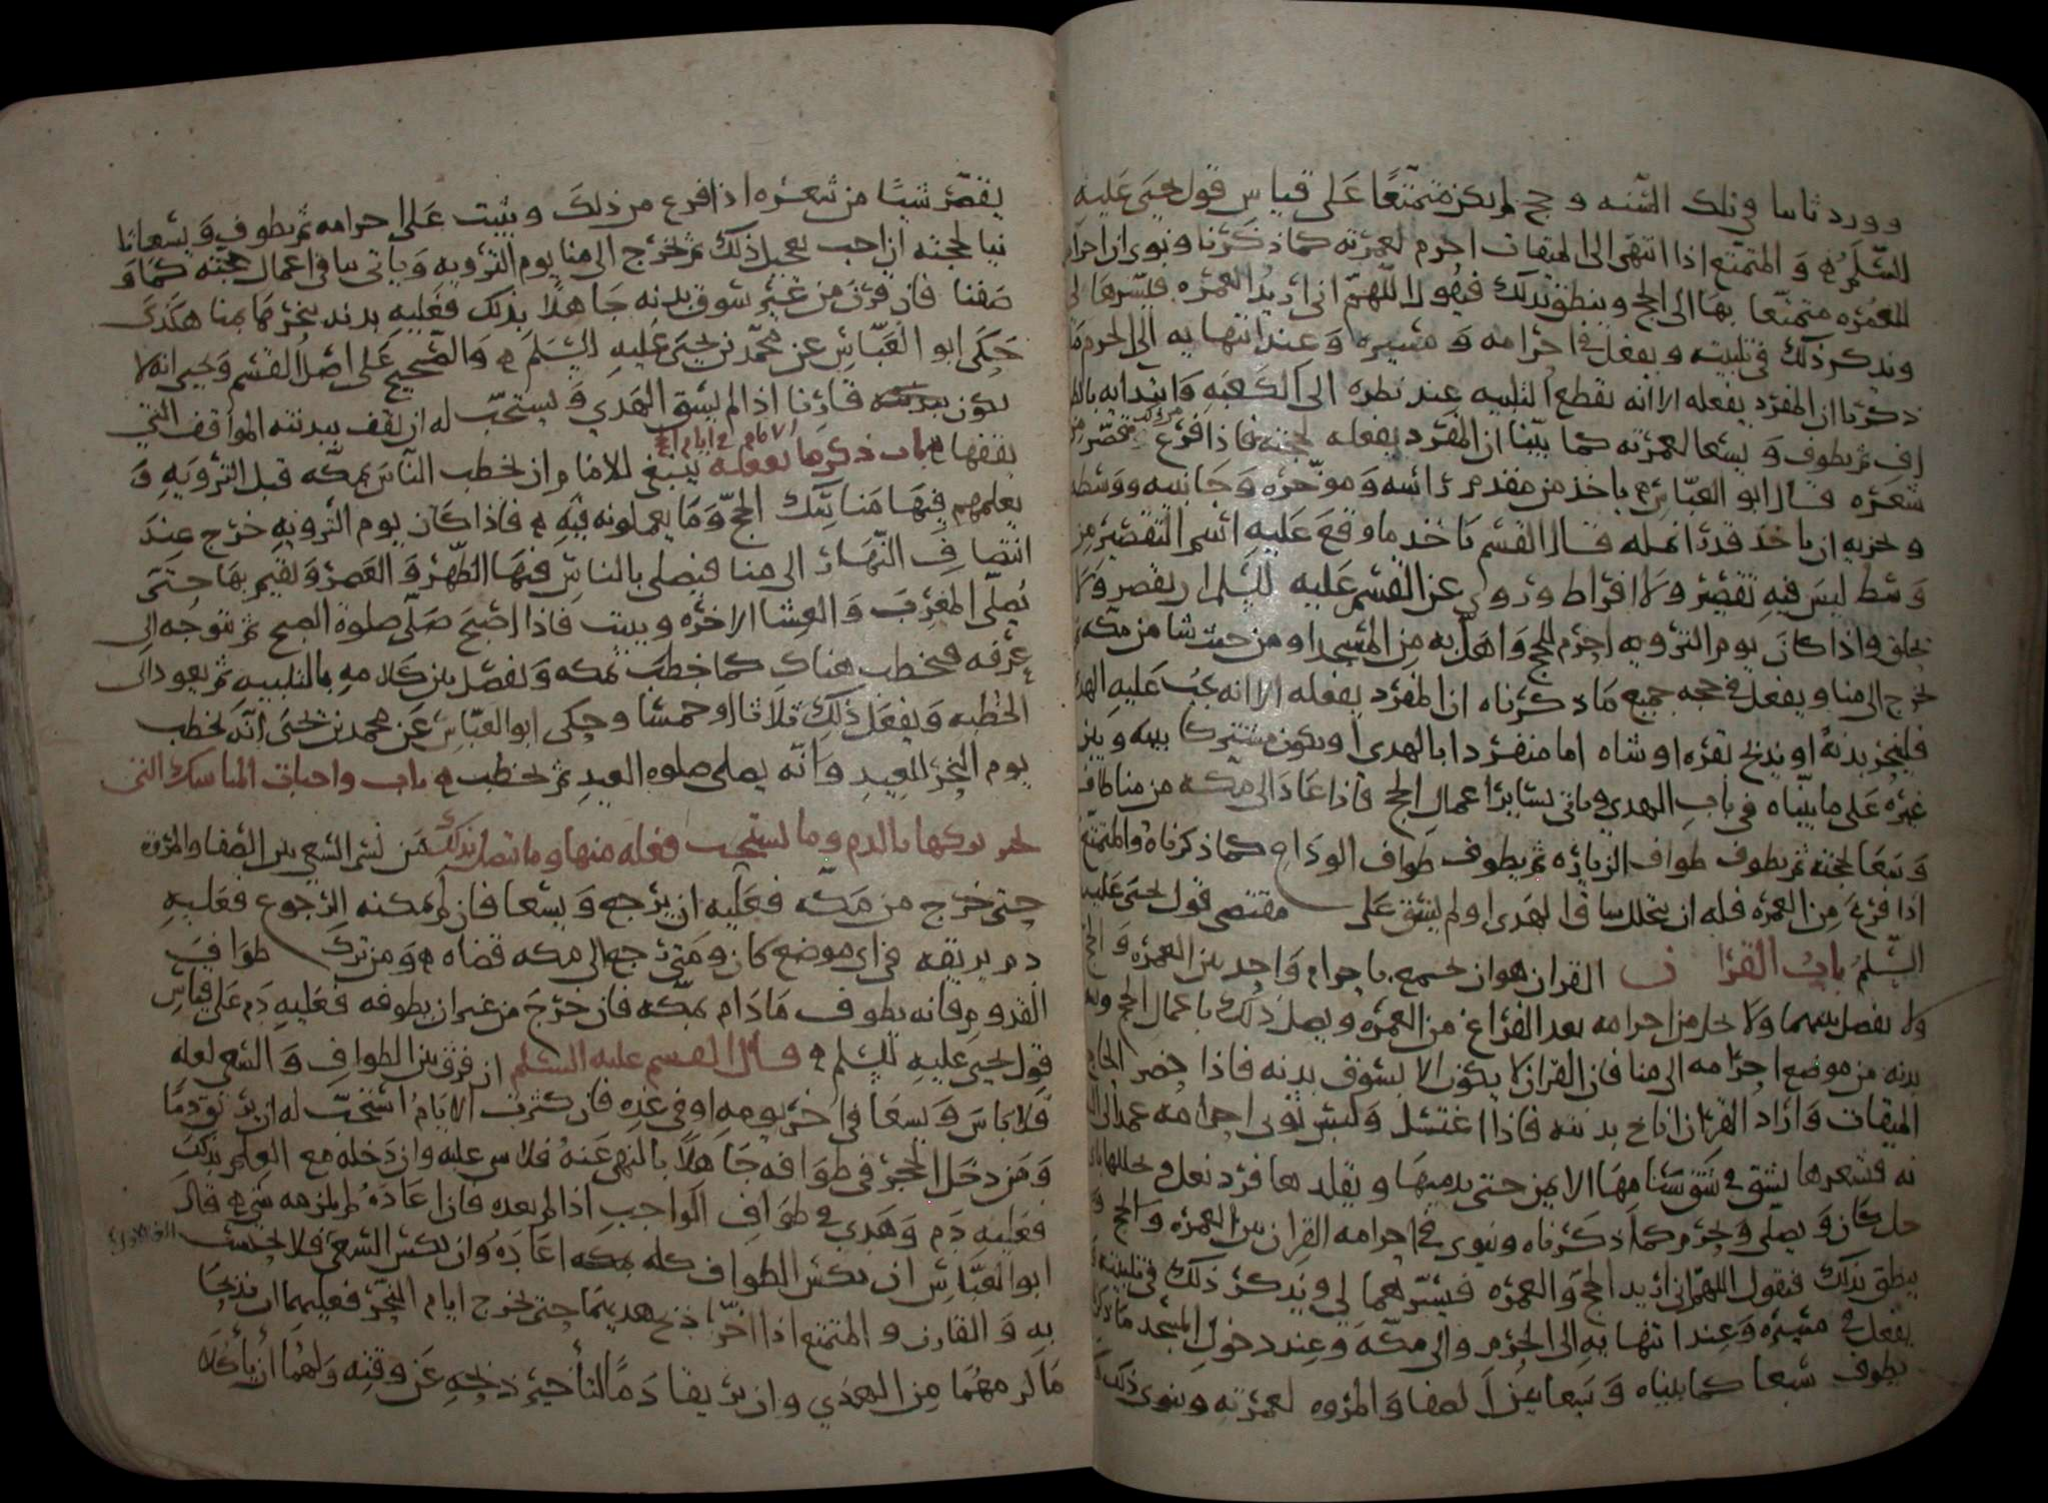 وورد ثانيا في تلك السنه وحج لم يكن متمتعا على قياس قول يحيى عليه
السلم والمتمتع اذا انتهى الى الميقات احرم لعمرته كما ذكرنا ونوى ان احرامه
للعمره متمتعا بها الى الحج وينطق بذلك فيقول اللهم اني اريد العمره فيسرها لي
ويذكر ذلك في تلبيته ويفعل في احرامه ومسيره وعند انتهايه الى الحرم ما
ذكرنا ان المفرد يفعله الا انه يقطع التلبيه عند نظره الى الكعبه وابتدايه بالطو
اف ثم يطوف ويسعا لعمرته كما بينا ان المفرد يفعله لحجته فاذا فرغ من ذلك قصر من
شعره قال ابو العباس ياخذ من مقدم راسه وموخره وجانبيه ووسطه
ويجزيه ان ياخذ قدر انمله قال القسم ياخذ ما وقع عليه اسم التقصير من
وسط ليس فيه تقصير ولا افراط وروي عن القسم عليه السلم ان يقصر ولا
يحلق واذا كان يوم الترويه احرم للحج واهل به من المسجد او من حيث شا من مكه ثم
يخرج الى منا ويفعل في حجه جميع ما ذكرناه ان المفرد يفعله الا انه يجب عليه الهدي
فلينحر بدنه او يذبح بقره او شاه اما منفردا بالهدي او يكون مشتركا بينه وبين
غيره على ما بيناه في باب الهدي وياتي بساير اعمال الحج فاذا عاد الى مكه من منا طاف
وسعا لحجته ثم يطوف طواف الزياره ثم يطوف طواف الوداع كما ذكرناه والمتمتع
اذا فرغ من العمره فله ان يتحلل ساق الهدي او لم يسق على مقتضى قول يحيى عليه
السلم باب القران القران هو ان يجمع باحرام واحد بين العمره والحج
ولا يفصل بينهما ولا يحل من احرامه بعد الفراغ من العمره ويصل ذلك باعمال الحج
بدنه من موضع احرامه الى منا فان القران لا يكون الا بسوق بدنه فاذا حضر الحاج
الميقات واراد القران اناخ بدنته فاذا اغتسل ولبس ثوبي احرامه عمد الى
نه فشعرها بشق في شق سنامها الايمن حتى يدميها ويقلدها فرد نعل ويجللها باي
جل كان ويصلي ويحرم كما ذكرناه وينوي في احرامه القران بين العمره والحج و
ينطق بذلك فيقول اللهم اني اريد الحج والعمره فيسرهما لي ويذكر ذلك في تلبيته
يفعل في مسيره وعند انتهايه الى الحرم والى مكه وعند دخول المسجد ما ذكرنا
يطوف سبعا كما بيناه وسعا بين الصفا والمروه لعمرته وينوي ذلك
يقصر شيا من شعره اذا فرغ من ذلك ويثبت على احرامه ثم يطوف ويسعا ثا
نيا لحجته ان احب تعجيل ذلك ثم يخرج الى منا يوم الترويه وياتي بباقي اعمال حجته كما و
صفنا فان قرن من غير سوق بدنه جاهلا بذلك فعليه بدنه ينحرها بمنا هكذى
حكى ابو العباس عن محمد بن يحيى عليه السلم والصحيح على اصل القسم ويحيى انه لا
يكون قارنا اذا لم يسق الهدي ويستحب له ان يقف ببدنته المواقف التي
يقفها باب ذكر ما يفعله الامام في ايام الحج ينبغي للامام ان يخطب الناس بمكه قبل الترويه و
يعلمهم فيها مناسك الحج وما يعملونه فيه فاذا كان يوم الترويه خرج عند
انتصاف النهار الى منا فيصلي بالناس فيها الظهر والعصر ويقيم بها حتى
يصلي المغرب والعشا الاخره ويبيت فاذا اصبح صلى صلوة الصبح ثم يتوجه الى
عرفه فيخطب هناك كما خطب بمكه ويفصل بين كلامه بالتلبيه ثم يعود الى
الخطبه ويفعل ذلك ثلاثا او خمسا وحكى ابو العباس عن محمد بن يحيى انه يخطب
يوم النحر للعيد وانه يصلي صلوه العيد ثم يخطب باب واجبات المناسك التي
يجبر تركها بالدم وما يستحب فعله منها وما يتصل بذلك من نسي السعي بين الصفا والمروه
حتى خرج من مكه فعليه ان يرجع ويسعا فان لم يمكنه الرجوع فعليه
دم يريقه في اي موضع كان ومتى رجع الى مكه قضاه ومن ترك طواف
القدوم فانه يطوف ما دام بمكه فان خرج من غير ان يطوفه فعليه دم على قياس
قول يحيى عليه السلم قال القسم عليه السلم ان فرق بين الطواف والسعي لعله
فلا باس ويسعا في اخر يومه او في غده فان كثرت الايام استحب له ان يريق دما
ومن دخل الحجر في طوافه جاهلا بالنهي عنه فلا شي عليه وان دخله مع العلم بذلك
فعليه دم وهدي في طواف الواجب اذا لم يعده فاذا عاده لم يلزمه شي قال
ابو العباس ان نكس الطواف كله بمكه اعاده وان نكس السعي فلا يحتسب
به والقارن والمتمتع اذا اخرا ذبح هديهما حتى يخرج ايام النحر فعليهما ان يذبحا
ما لزمهما من الهدي وان يريقا دما لتاخير ذبحه عن وقته ولهما ان ياكلا